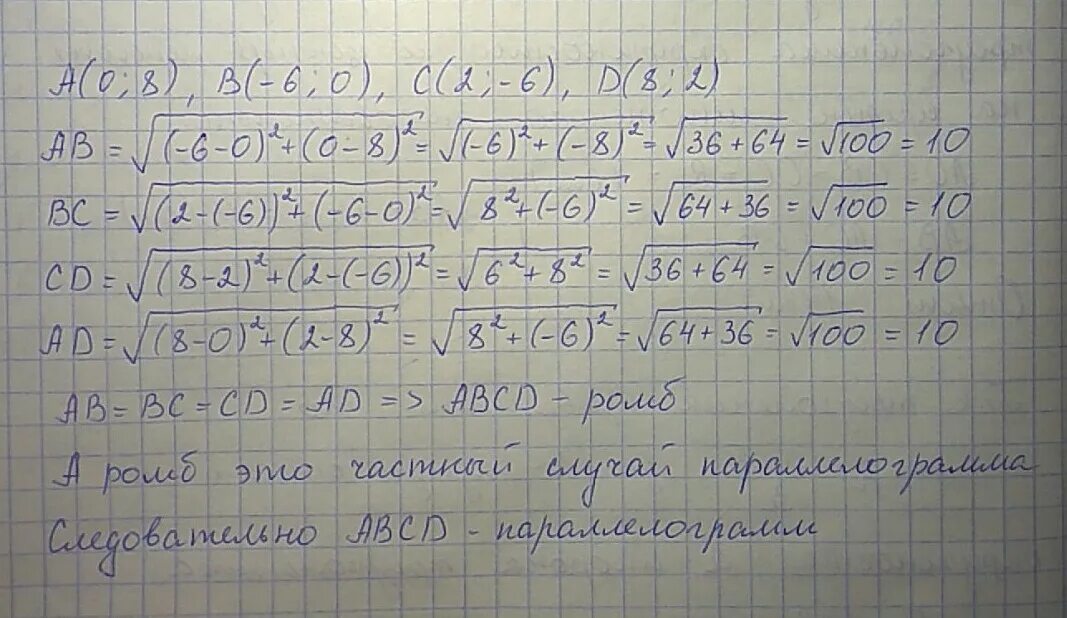 A(0; 8), B(-6; 0), C(2; -6), D(8; 2)
AB = √((-6-0)²+(0-8)²) = √((-6)²+(-8)²) = √(36+64) = √100 = 10
BC = √((2-(-6))²+(-6-0)²) = √(8²+(-6)²) = √(64+36) = √100 = 10
CD = √((8-2)²+(2-(-6))²) = √(6²+8²) = √(36+64) = √100 = 10
AD = √((8-0)²+(2-8)²) = √(8²+(-6)²) = √(64+36) = √100 = 10
AB = BC = CD = AD => ABCD - ромб
А ромб это частный случай параллелограмма
Следовательно ABCD - параллелограмм